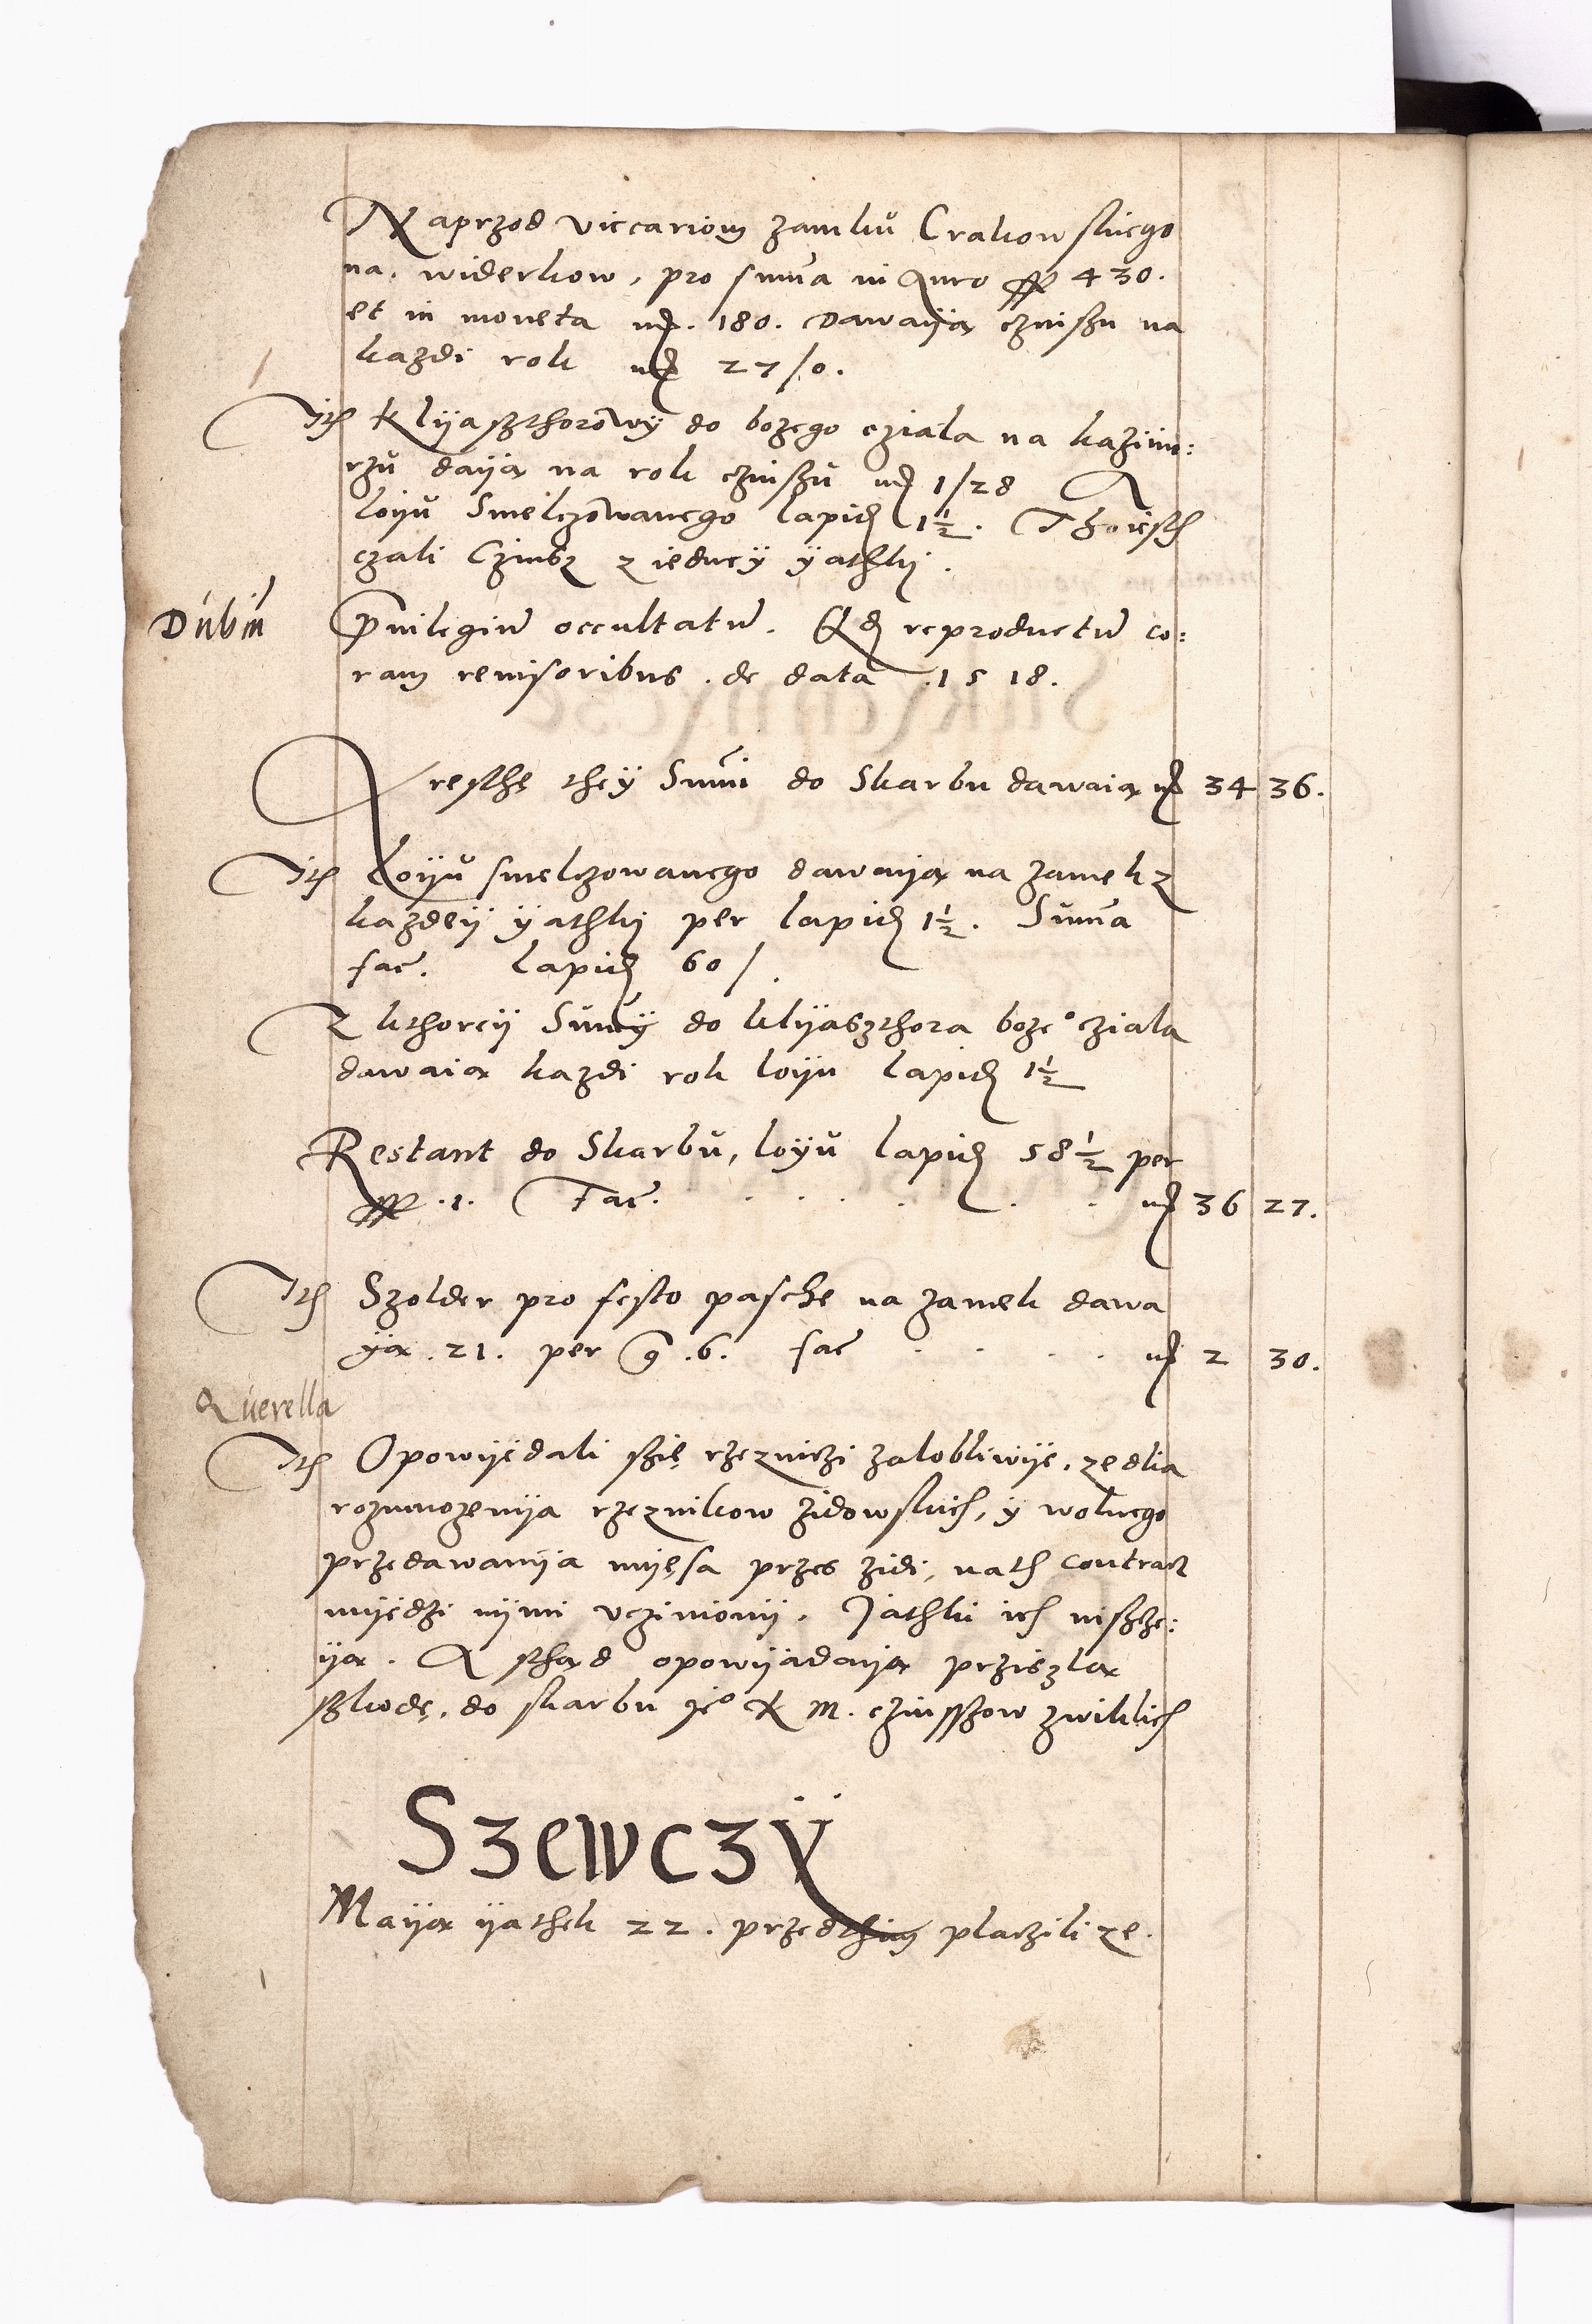 Naprzod viccariom zamku Crakowskiego
na widerkow, pro summa in Auro ff 430.
et in moneta mrc. 180. Dawayą czinszu na
kazdi rok mrc 27/0.
Itm Klyaszthorowy do bozego cziala na kazimi:
rzu dayą na rok czinszu mrc 1/28
loyu Smelczowanego lapid 1½. Tho iesth
czali Czinsz z iedney yathky.
Dubiū
Privilegiū occultatū. Qd reproductū co:
ram revisoribus. de data .1518.
A resthe they Summi do Skarbu dawaią mrc 34 36.
Itm Loyu smelczowanego dawayą na zamek z
kazdey yathky per lapid 1½. Summa
fac. lapid 60/.
Z kthorey Summy do klyaszthora boze° cziala
dawaią kazdi rok loyu lapid 1½
Restant do Skarbu, loyu lapid 58½ per
ff .1. Fac. mrc 36 27.
Itm Szolder pro festo pasche na zamek dawa
yą .21. per g .6. fac mrc 2 30.
Querella
Itm Opowyedali szię rzezniczi zalobliwye, ze dlia
rozmnozenya rzeznikow zidowskich, y wolnego
przedawanya myęsa przes zidi, nath contract
myedzi nymi vcziniony. Jathki ich niszcze:
yą. A sthąd opowyadayą przislą
szkodę, do skarbu ye° K M. czinsszow zwiklich
Szewczy
Mayą yathek 22. przedthim placzili ze.